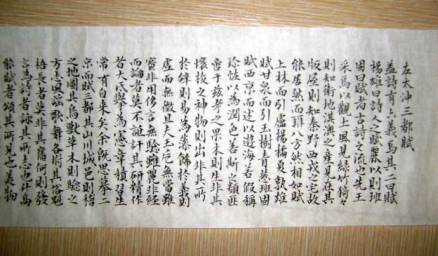 左太沖三都賦
蓋詩有六義焉其二曰賦
楊雄曰詩人之賦麗以則班
固曰賦者古詩之流也先王
采焉以觀土風見綠竹猗猗
則知衛地淇澳之產見在其
版屋則知秦野西戎之宅故
能居然而辨八方然相如賦
上林而引盧橘夏熟楊雄
賦甘泉而陳玉樹青葱班固
賦西京而述以遊海若假稱
珍怪以為潤色若斯之類匪
啻于茲考之果木則生非其
壤校之神物則出非其所
於辭則易為藻飾於義則
虛而無徵且夫玉卮無當雖
寶非用侈言無驗雖麗非經
而論者莫不詆訐其研精作
者大氐舉為憲章積習生
常有自來矣余既思摹二
京而賦三都其山川城邑則稽
之地圖其鳥獸草木則驗之
方志風謠歌舞各附其俗魁
梧長者莫非其舊何則發
言為詩者詠其所志也升高
能賦者頌其所見也美物